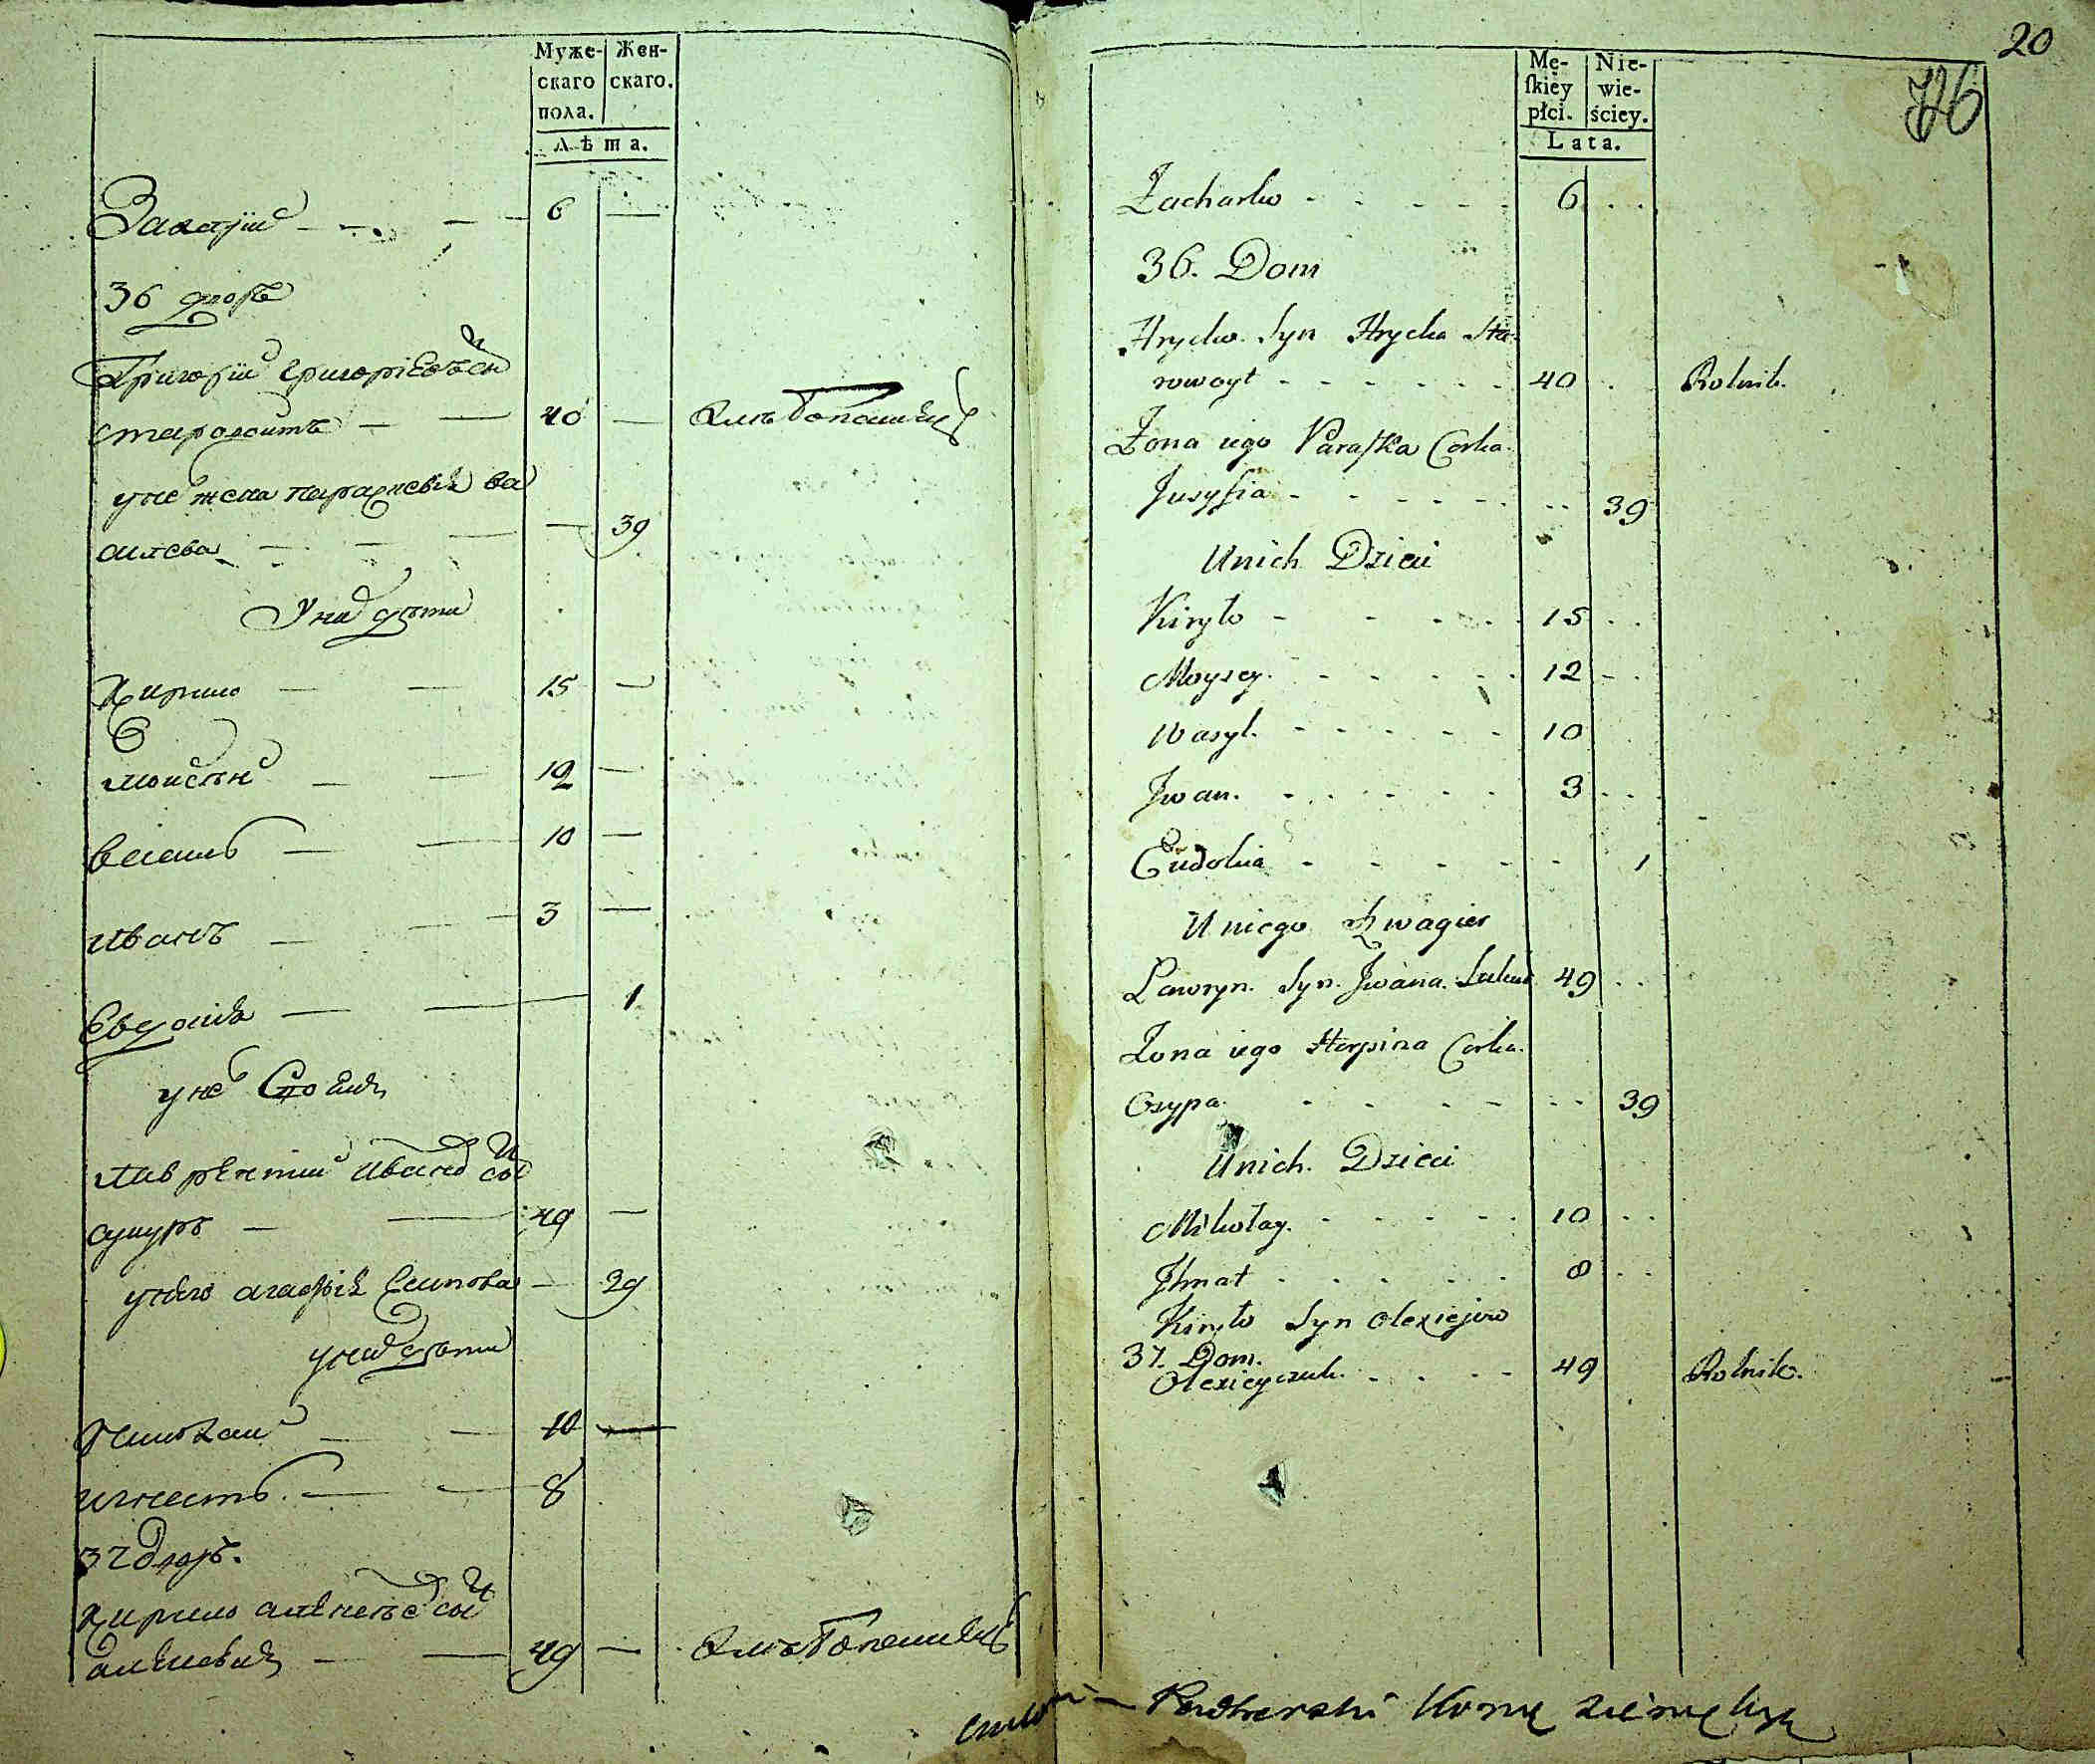 Муже- Жен-
скаго скаго.
пола.
Лѣта.
Захарїй 6
36 дворъ
Григорїй Григорїевъ сн
Старовойтъ 40 Хлѣбопашецъ
у не жена Параскевїя Ва
силева 39
У них дѣти
Кирило 15
Моисѣй 12
Василь 10
Иванъ 3
Евдокїя 1
у не
Лаврентий Иванов сн
49
у него Агафїя 39
у них дѣти
Николай 10
Игнатъ 8
37 дворъ.
Кирило сн
49 Хлѣбопашецъ
20
726
Mę- Nie-
ſkiey wie-
płci. ściey.
Lata.
Zacharko 6
36. Dom
Hryćko Syn Hryćka Sta-
rowoyt 40 Rolnik.
Żona iego Paraſka Corka
Jusyfia 39
U nich Dzieci
Kiryło 15
Moysey 12
Wasyl. 10
Jwan. 3
Eudokia 1
U niego Szwagier
Lawryn. Syn. Jwana. 49
Żona iego Horpina Corka.
Osypa. 39
U nich. Dzieci
Mikołay. 10
Jhnat 8
Kiryło Syn Olexiejow
37. Dom.
Olexieyczuk. 49 Rolnik.